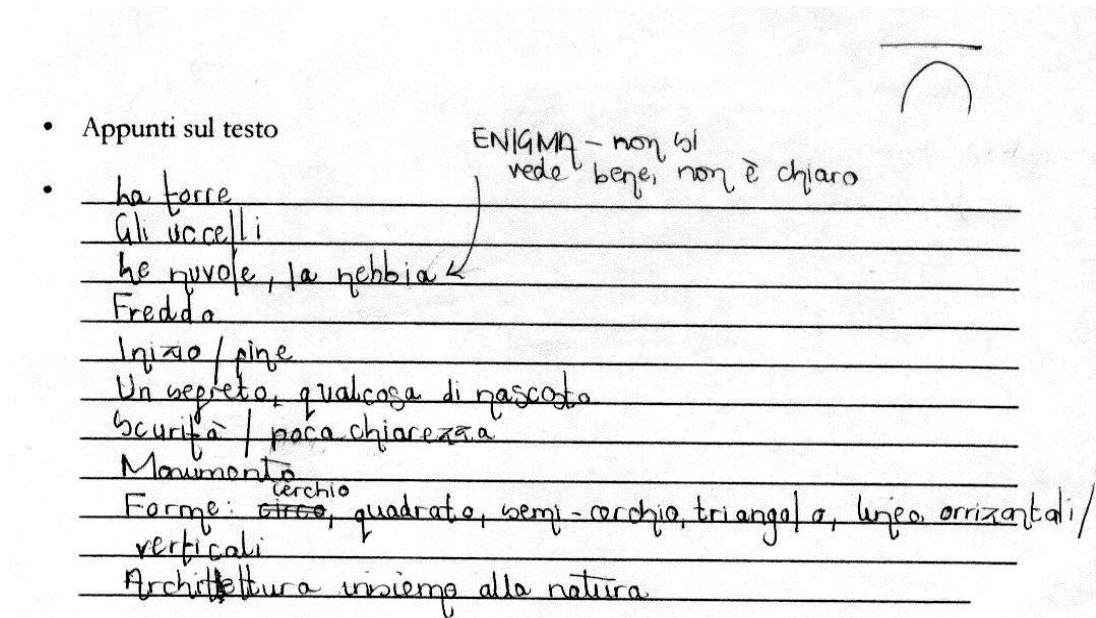 • Appunti sul testo
ENIGMA – non si
vede bene, non è chiaro
• La torre
Gli uccelli
Le nuvole, la nebbia
Fredda
Inizio / fine
Un segreto, qualcosa di nascosto
Scurità / poca chiarezza
Monumento
cerchio
Forme: circo, quadrato, semi-cerchio, triangolo, linee orrizantali/
verticali
Architettura insieme alla natura